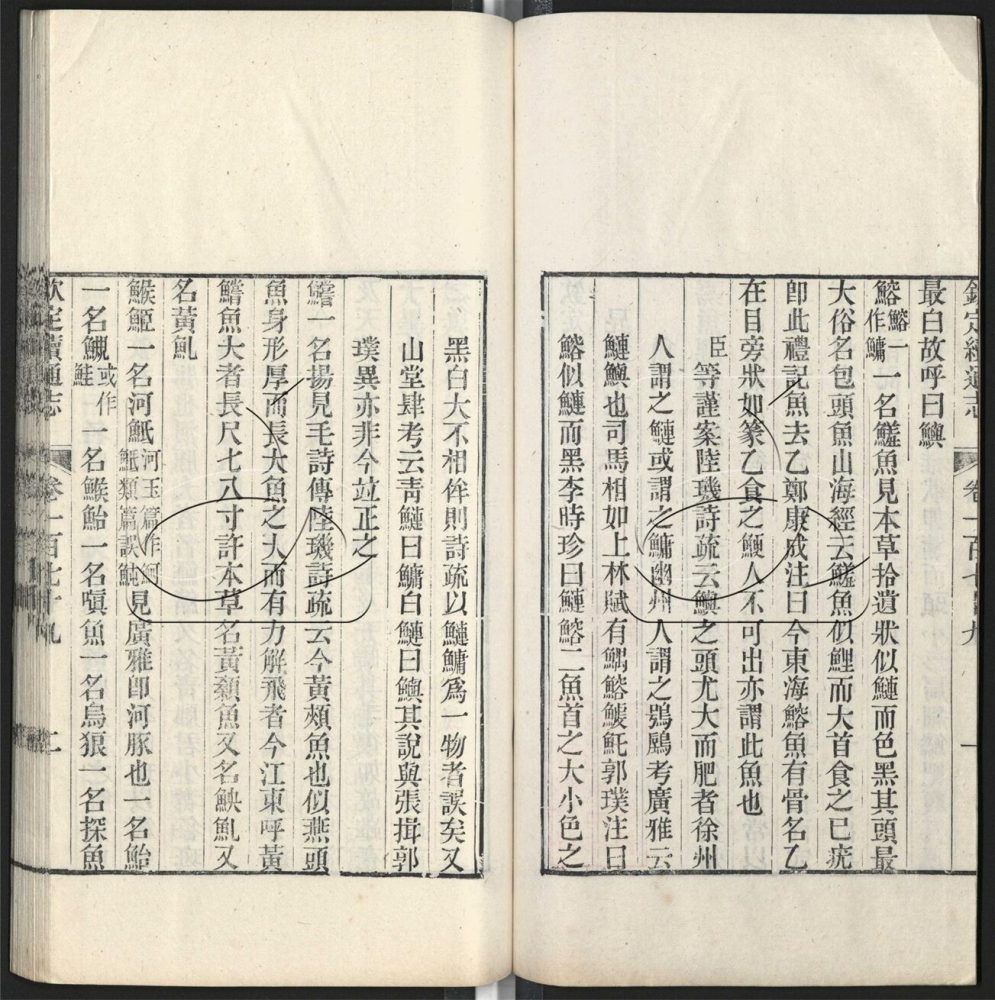 最白故呼曰鱮
鰫鰫一作鱅一名鱃魚見本草拾遺狀似鰱而色黑其頭最
大俗名包頭魚山海經云鱃魚似鯉而大首食之已疣
卽此禮記魚去乙鄭康成注曰今東海鰫魚有骨名乙
在目旁狀如篆乙食之鯁人不可出亦謂此魚也
臣等謹案陸璣詩疏云鱮之頭尤大而肥者徐州
人謂之鰱或謂之鱅幽州人謂之鴞鷉考廣雅云
鰱鱮也司馬相如上林賦有鰅鰫鯪魠郭璞注曰
鰫似鰱而黑李時珍曰鰱鰫二魚首之大小色之
黑白大不相侔則詩疏以鰱鱅爲一物者誤矣又
山堂肆考云靑鰱曰鱅白鰱曰鱮其說與張揖郭
璞異亦非今竝正之
鱨一名揚見毛詩傳陸璣詩疏云今黃頰魚也似燕頭
魚身形厚而長大魚之大而有力解飛者今江東呼黃
鱨魚大者長尺七八寸許本草名黃顙魚又名鉠魚又
名黃魚
鯸一名河魨見廣雅卽河豚也一名鮐
一名鯢或作鮭一名鯸鮐一名嗔魚一名烏狼一名探魚
欽定續通志 卷一百七十九 二